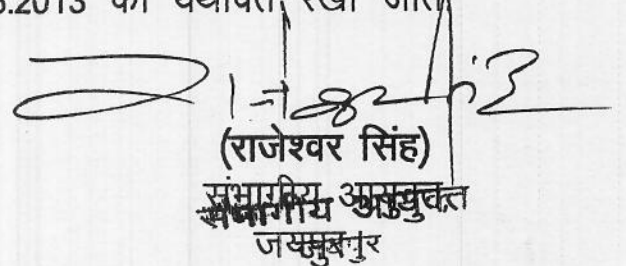 .2013 को यथावत् रखा जाता
(राजेश्वर सिंह)
संभागीय आयुक्त
जयपुर